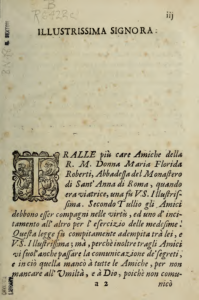 iij
ILLUSTRISSIMA SIGNORA:
TRALLE più care Amiche della
R. M. Donna Maria Florida
Roberti, Abbadessa del Monastero
di Sant'Anna di Roma, quando
era viatrice, una fù V.S. Illustris-
sima. Secondo Tullio gli Amici
debbono esser compagni nelle virtù, ed uno d'inci-
tamento all'altro per l'esercizio delle medesime.
Questa legge fù compitamente adempita trà lei, e
V.S. Illustrissima; mà, perchè inoltre tragli Amici
vi suol'anche passare la comunicazione de' segreti,
e in ciò quella mancò à tutte le Amiche, per non
mancare all'Umiltà, e à Dio, poichè non comu-
a 2
nicò